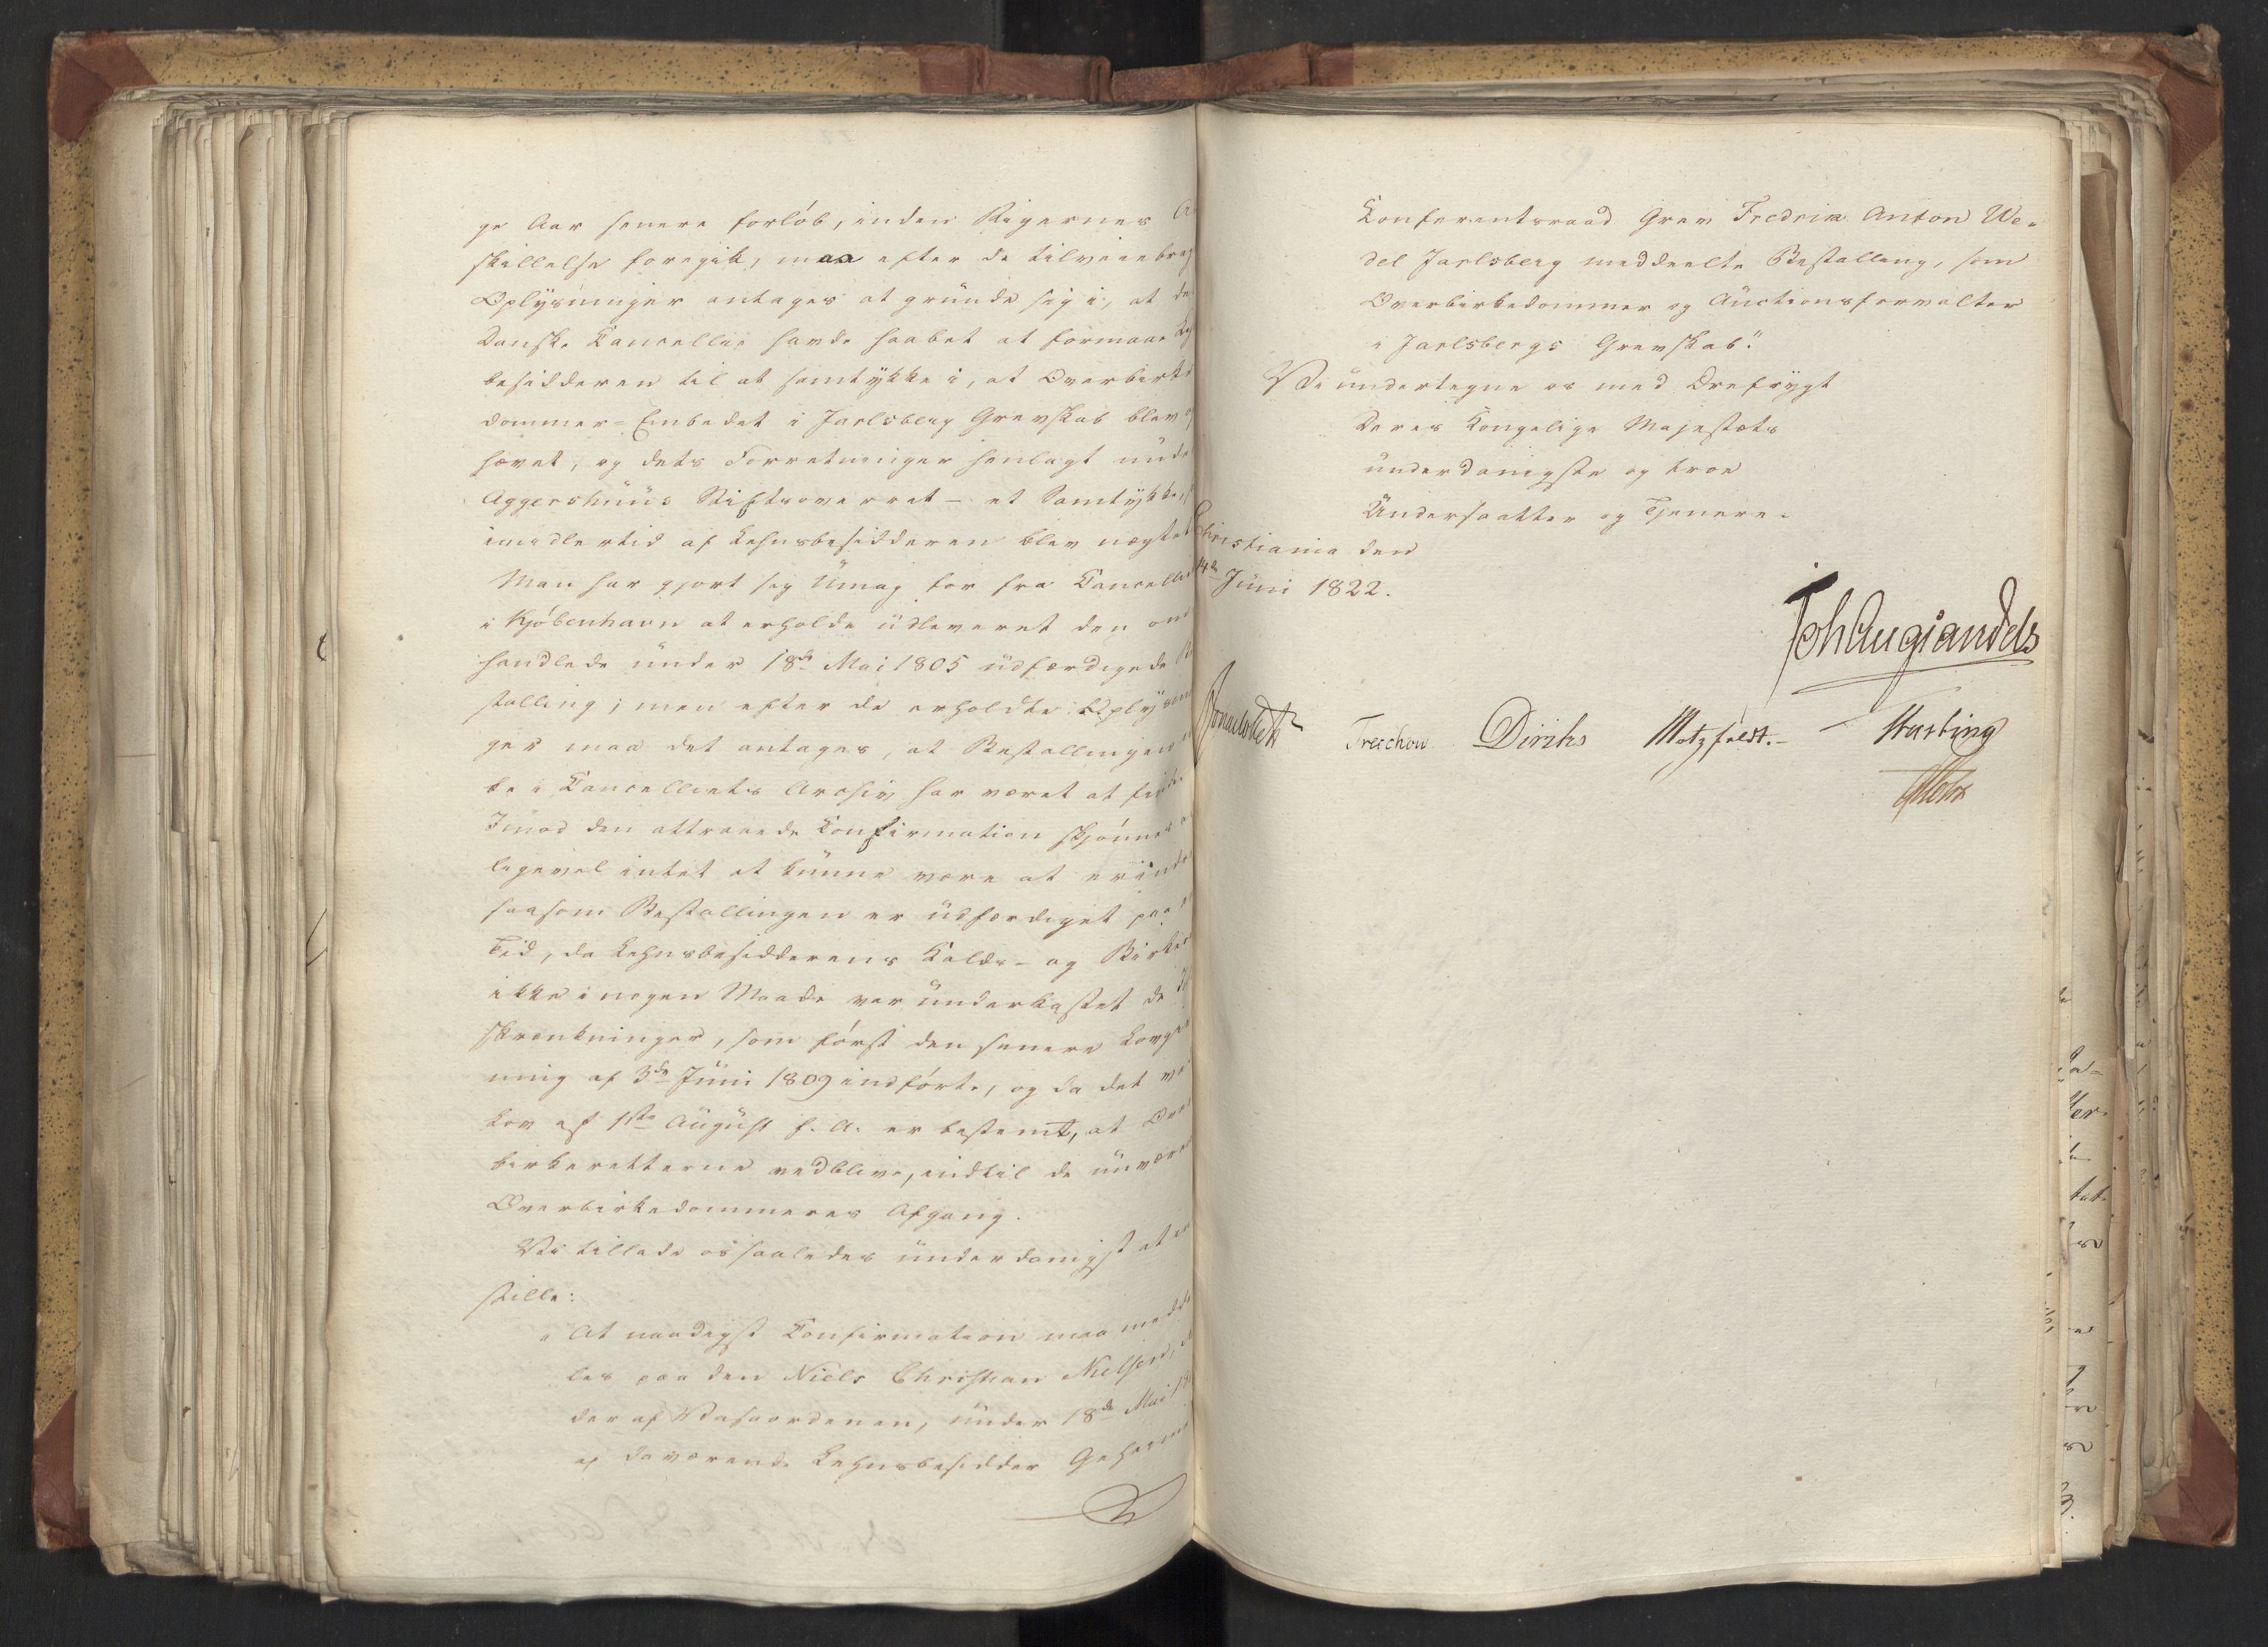 ge Aar senere forløb, inden Rigernes
skillelse foregik, maa efter de tilveiebrag
Oplysninger antages at grunde sig i, at de
Danske Cancellie havde haabet at formaae
besidderen til at samtykke i, at Overbirke
dommer-Embedet i Jarlsberg Grevskab blev
hævet, og dets Forretninger henlagt unde
Aggershuus Stiftsoverret – et Samtykke,
imidlertid af Lehnsbesidderen blev nægtet
Man har gjort sig Umag for fra Cancellie
i Kjøbenhavn at erholde udleveret den om
handlede under 18de Mai 1805 udfærdigede Be
stalling; men efter de erholdte Oplysnin
ger maa det antages, at Bestallingen
ke i Cancelliets Archiv har været at finde
Imod den attraaede Confirmation skjønnes
ligevel intet at kunne være at erindre
saasom Bestallingen er udfærdiget paa
Tid, da Lehnsbesidderens Kalds- og Birke
ikke i nogen Maade var underkastet de
skrænkninger, som først den senere Lovgiv
ning af 3de Juni 1809 indførte, og da det ved
Lov af 1ste August f. A. er bestemt, at Over
birkeretterne vedblive, indtil de nuværen
Overbirkedommeres Afgang.
Vi tillade os saaledes underdanigst at ind
stille:
"At naadigst Confirmation maa medde
les paa den Niels Christian Nielsen,
der af Vasaordenen, under 18de Mai
af daværende Lehnsbesidder Geheime
Konferentsraad Grev Fredrik Anton We-
del Jarlsberg meddeelte Bestalling, som
Overbirkedommer og Auctionsforvalter
i Jarlsbergs Grevskab."
Vi undertegne os med Ærefrygt
Deres Kongelige Majestæts
underdanigste og troe
Undersaatter og Tjenere.
Christiania den
14de Juni 1822.
Joh Aug Sandels
Sommerhielm Treschow Diriks Motzfeldt. Fasting
Holst